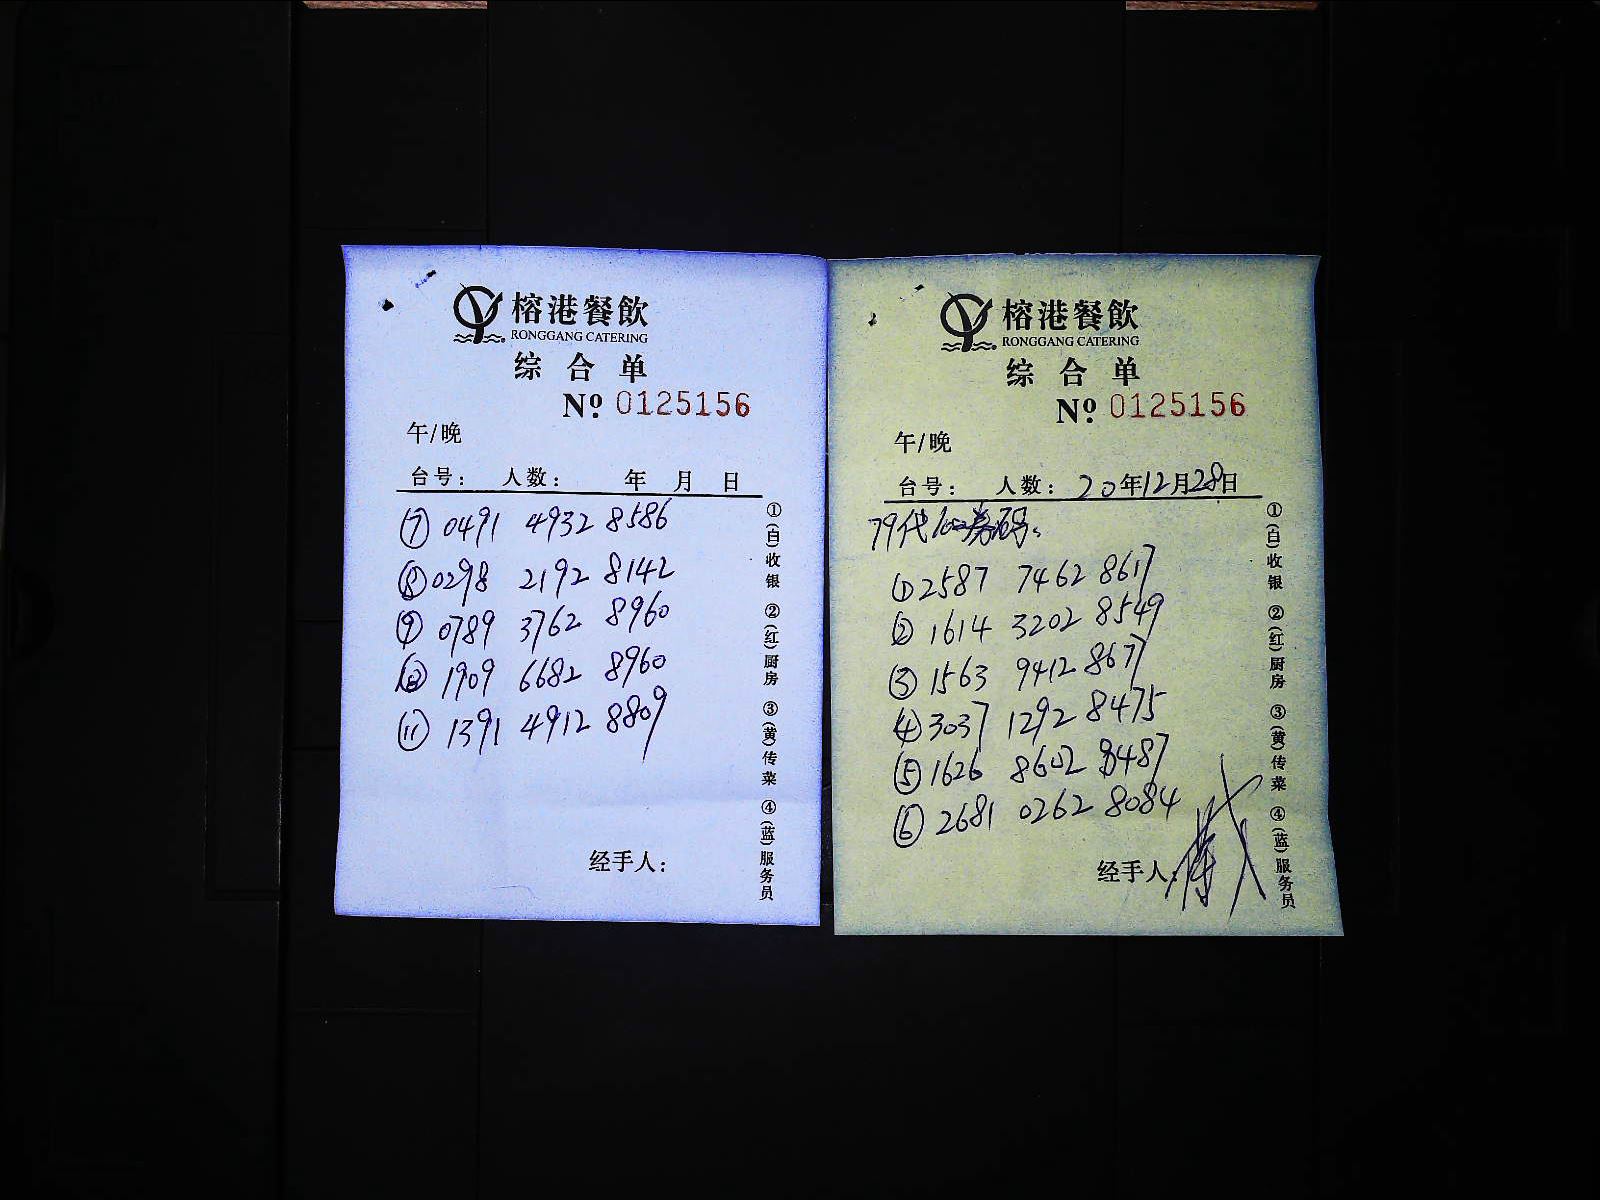 榕港餐飲
RONGGANG CATERING
综合单
Nº 0125156
午/晚
台号： 人数： 年 月 日
⑦ 0491 4932 8586
⑧ 0298 2192 8142
⑨ 0789 3762 8960
⑩ 1909 6682 8960
⑪ 1391 4912 8809
经手人：
①(白)收银 ②(红)厨房 ③(黄)传菜 ④(蓝)服务员
榕港餐飲
RONGGANG CATERING
综合单
Nº 0125156
午/晚
台号： 人数： 20年12月28日
79代100券码：
① 2587 7462 8617
② 1614 3202 8549
③ 1563 9412 8677
④ 3037 1292 8475
⑤ 1626 8602 8487
⑥ 2681 0262 8084
经手人：
①(白)收银 ②(红)厨房 ③(黄)传菜 ④(蓝)服务员